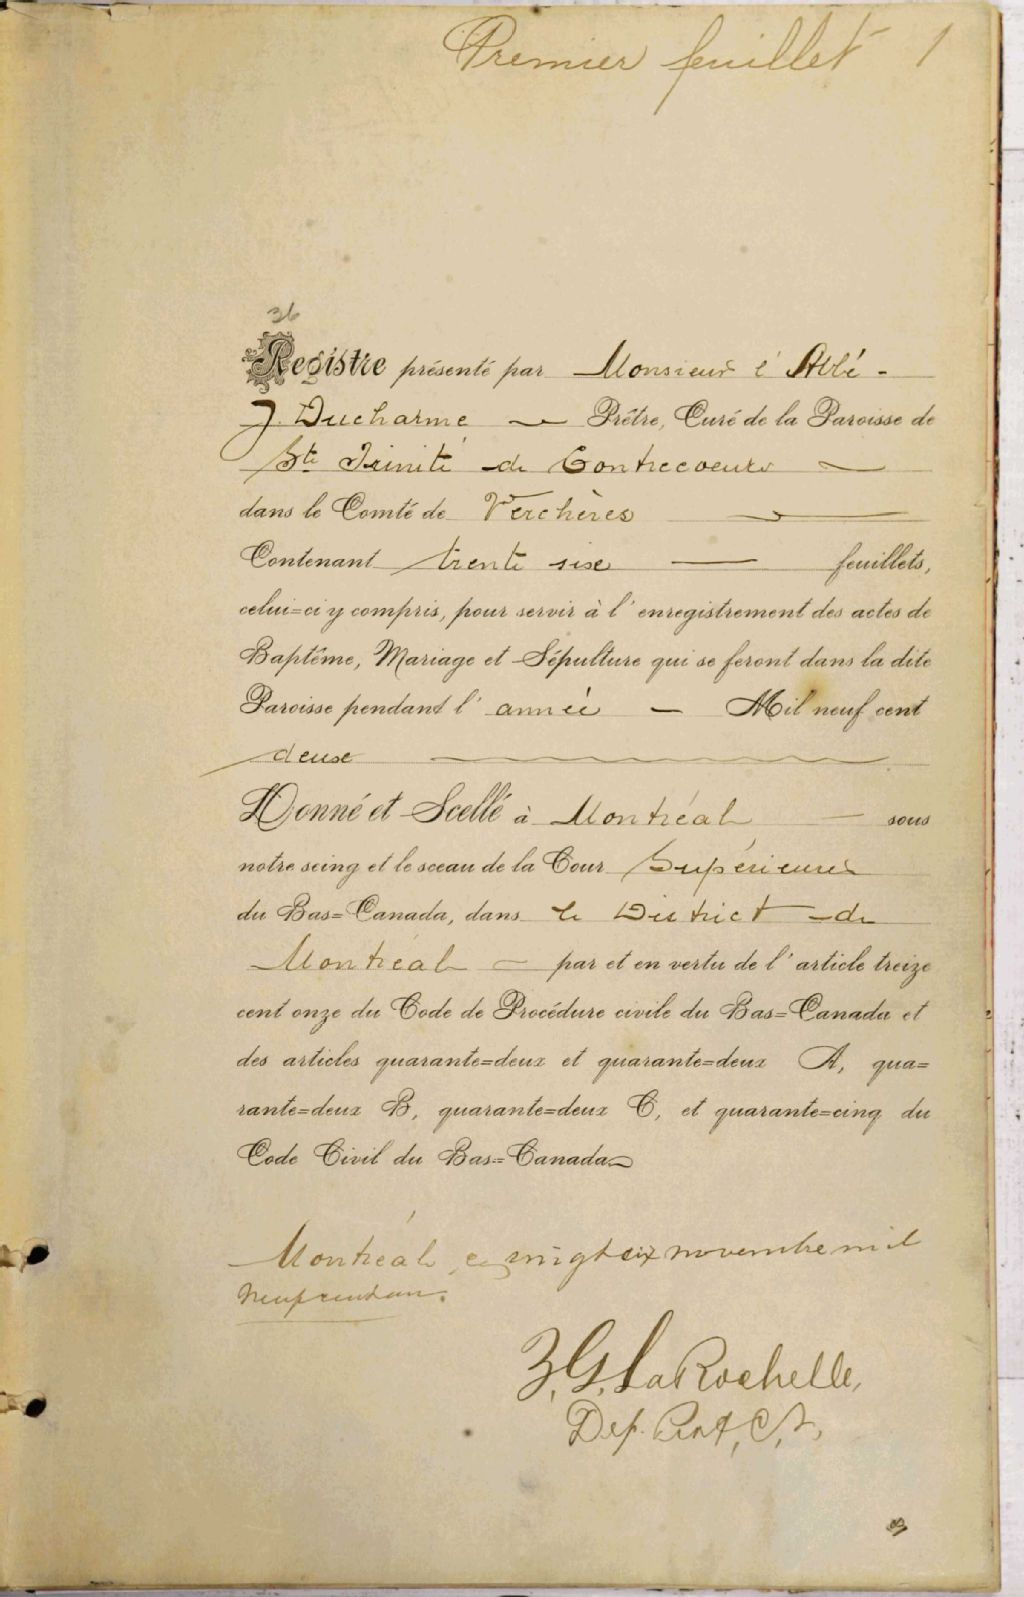 Premier feuillet 1
36
Registre présenté par Monsieur l'Abbé -
J. Ducharme — Prêtre, Curé de la Paroisse de
Ste Trinité de Contrecoeur —
dans le Comté de Verchères —
Contenant trente six — feuillets,
celui=ci y compris, pour servir à l'enregistrement des actes de
Baptême, Mariage et Sépulture qui se feront dans la dite
Paroisse pendant l'année — Mil neuf cent
deux
Donné et Scellé à Montréal — sous
notre seing et le sceau de la Cour Supérieure
du Bas=Canada, dans le District de
Montréal — par et en vertu de l'article treize
cent onze du Code de Procédure civile du Bas=Canada et
des articles quarante=deux et quarante=deux A, qua=
rante=deux B, quarante=deux C, et quarante=cinq du
Code Civil du Bas=Canada
Montréal ce vingt six novembre mil
neuf cent un.
Z. G. LaRochelle,
Dep. Prot. C. S.